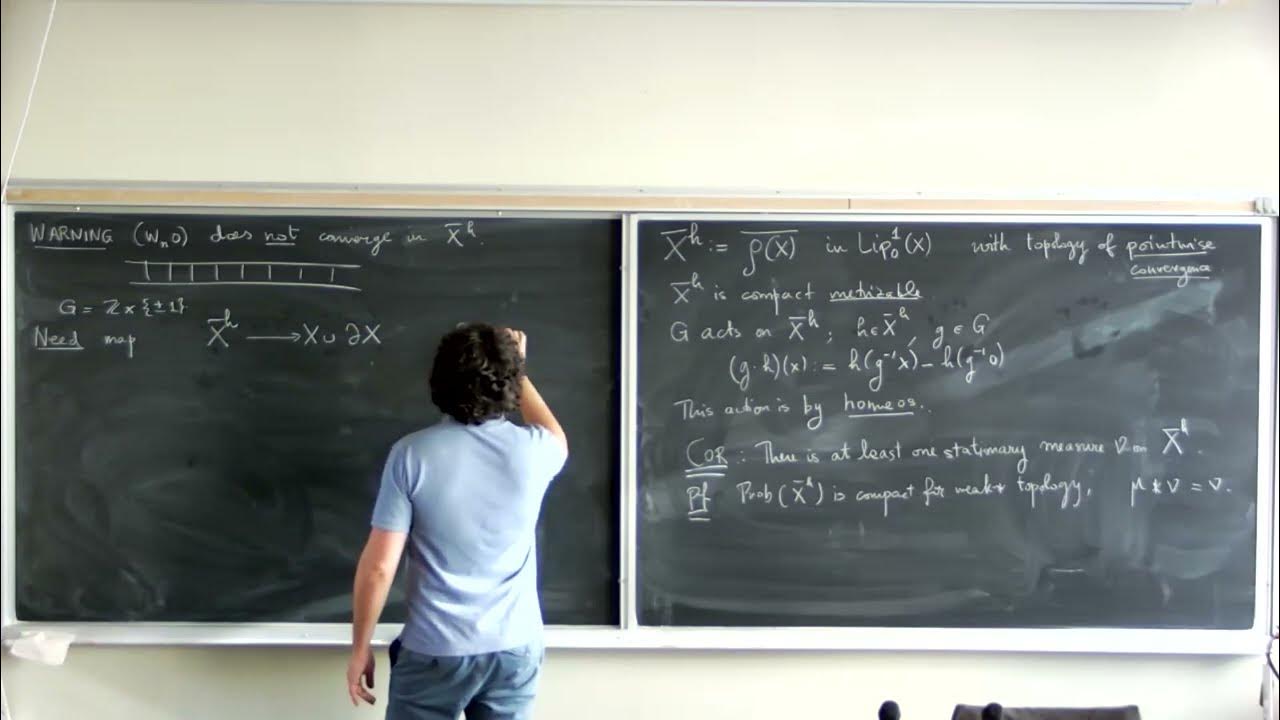 WARNING (Wₙo) does not converge in X̄ʰ.
G = ℤ × {±1}
Need map X̄ʰ ⟶ X ∪ ∂X
X̄ʰ := \overline{ρ(X)} in Lip¹₀(X) with topology of pointwise
convergence
X̄ʰ is compact metrizable.
G acts on X̄ʰ; h ∈ X̄ʰ, g ∈ G
(g·h)(x) := h(g⁻¹x) − h(g⁻¹o)
This action is by homeos.
COR : There is at least one stationary measure ν on X̄ʰ.
Pf Prob(X̄ʰ) is compact for weak* topology, μ * ν = ν.